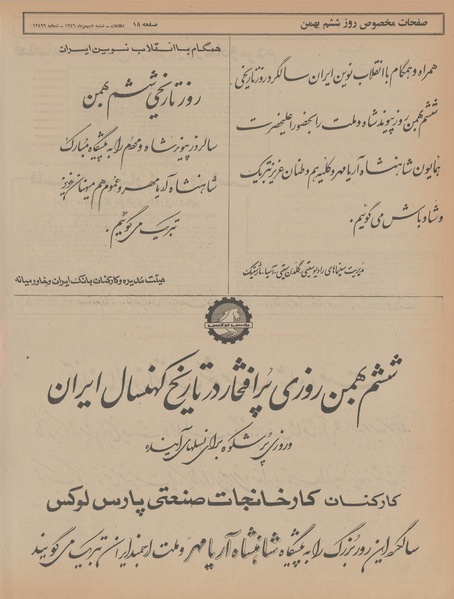 صفحات مخصوص روز ششم بهمن
صفحه ۱۸
اطلاعات - شنبه ۷ بهمن‌ماه ۱۳۴۶ - شماره
همراه و همگام با انقلاب نوین ایران سالگرد روز تاریخی
ششم بهمن روز پیوند شاه و ملت را بحضور اعلیحضرت
همایون شاهنشاه آریامهر و کلیه هم وطنان عزیز تبریک
و شادباش می گوئیم.
مدیریت سینماهای رادیوسیتی، گلدن سیتی، آسیا،
همگام با انقلاب نوین ایران
روز تاریخی ششم بهمن
سالروز پیوند شاه و مردم را به پیشگاه مبارک
شاهنشاه آریامهر و عموم هم میهنان عزیز
تبریک می گوئیم.
هیئت مدیره و کارکنان بانک ایران و خاورمیانه
ششم بهمن روزی پرافتخار در تاریخ کهنسال ایران
و روزی پرشکوه برای نسلهای آینده
کارکنان کارخانجات صنعتی پارس لوکس
سالگرد این روز بزرگ را به پیشگاه شاهنشاه آریامهر و ملت ارجمند ایران تبریک می گویند